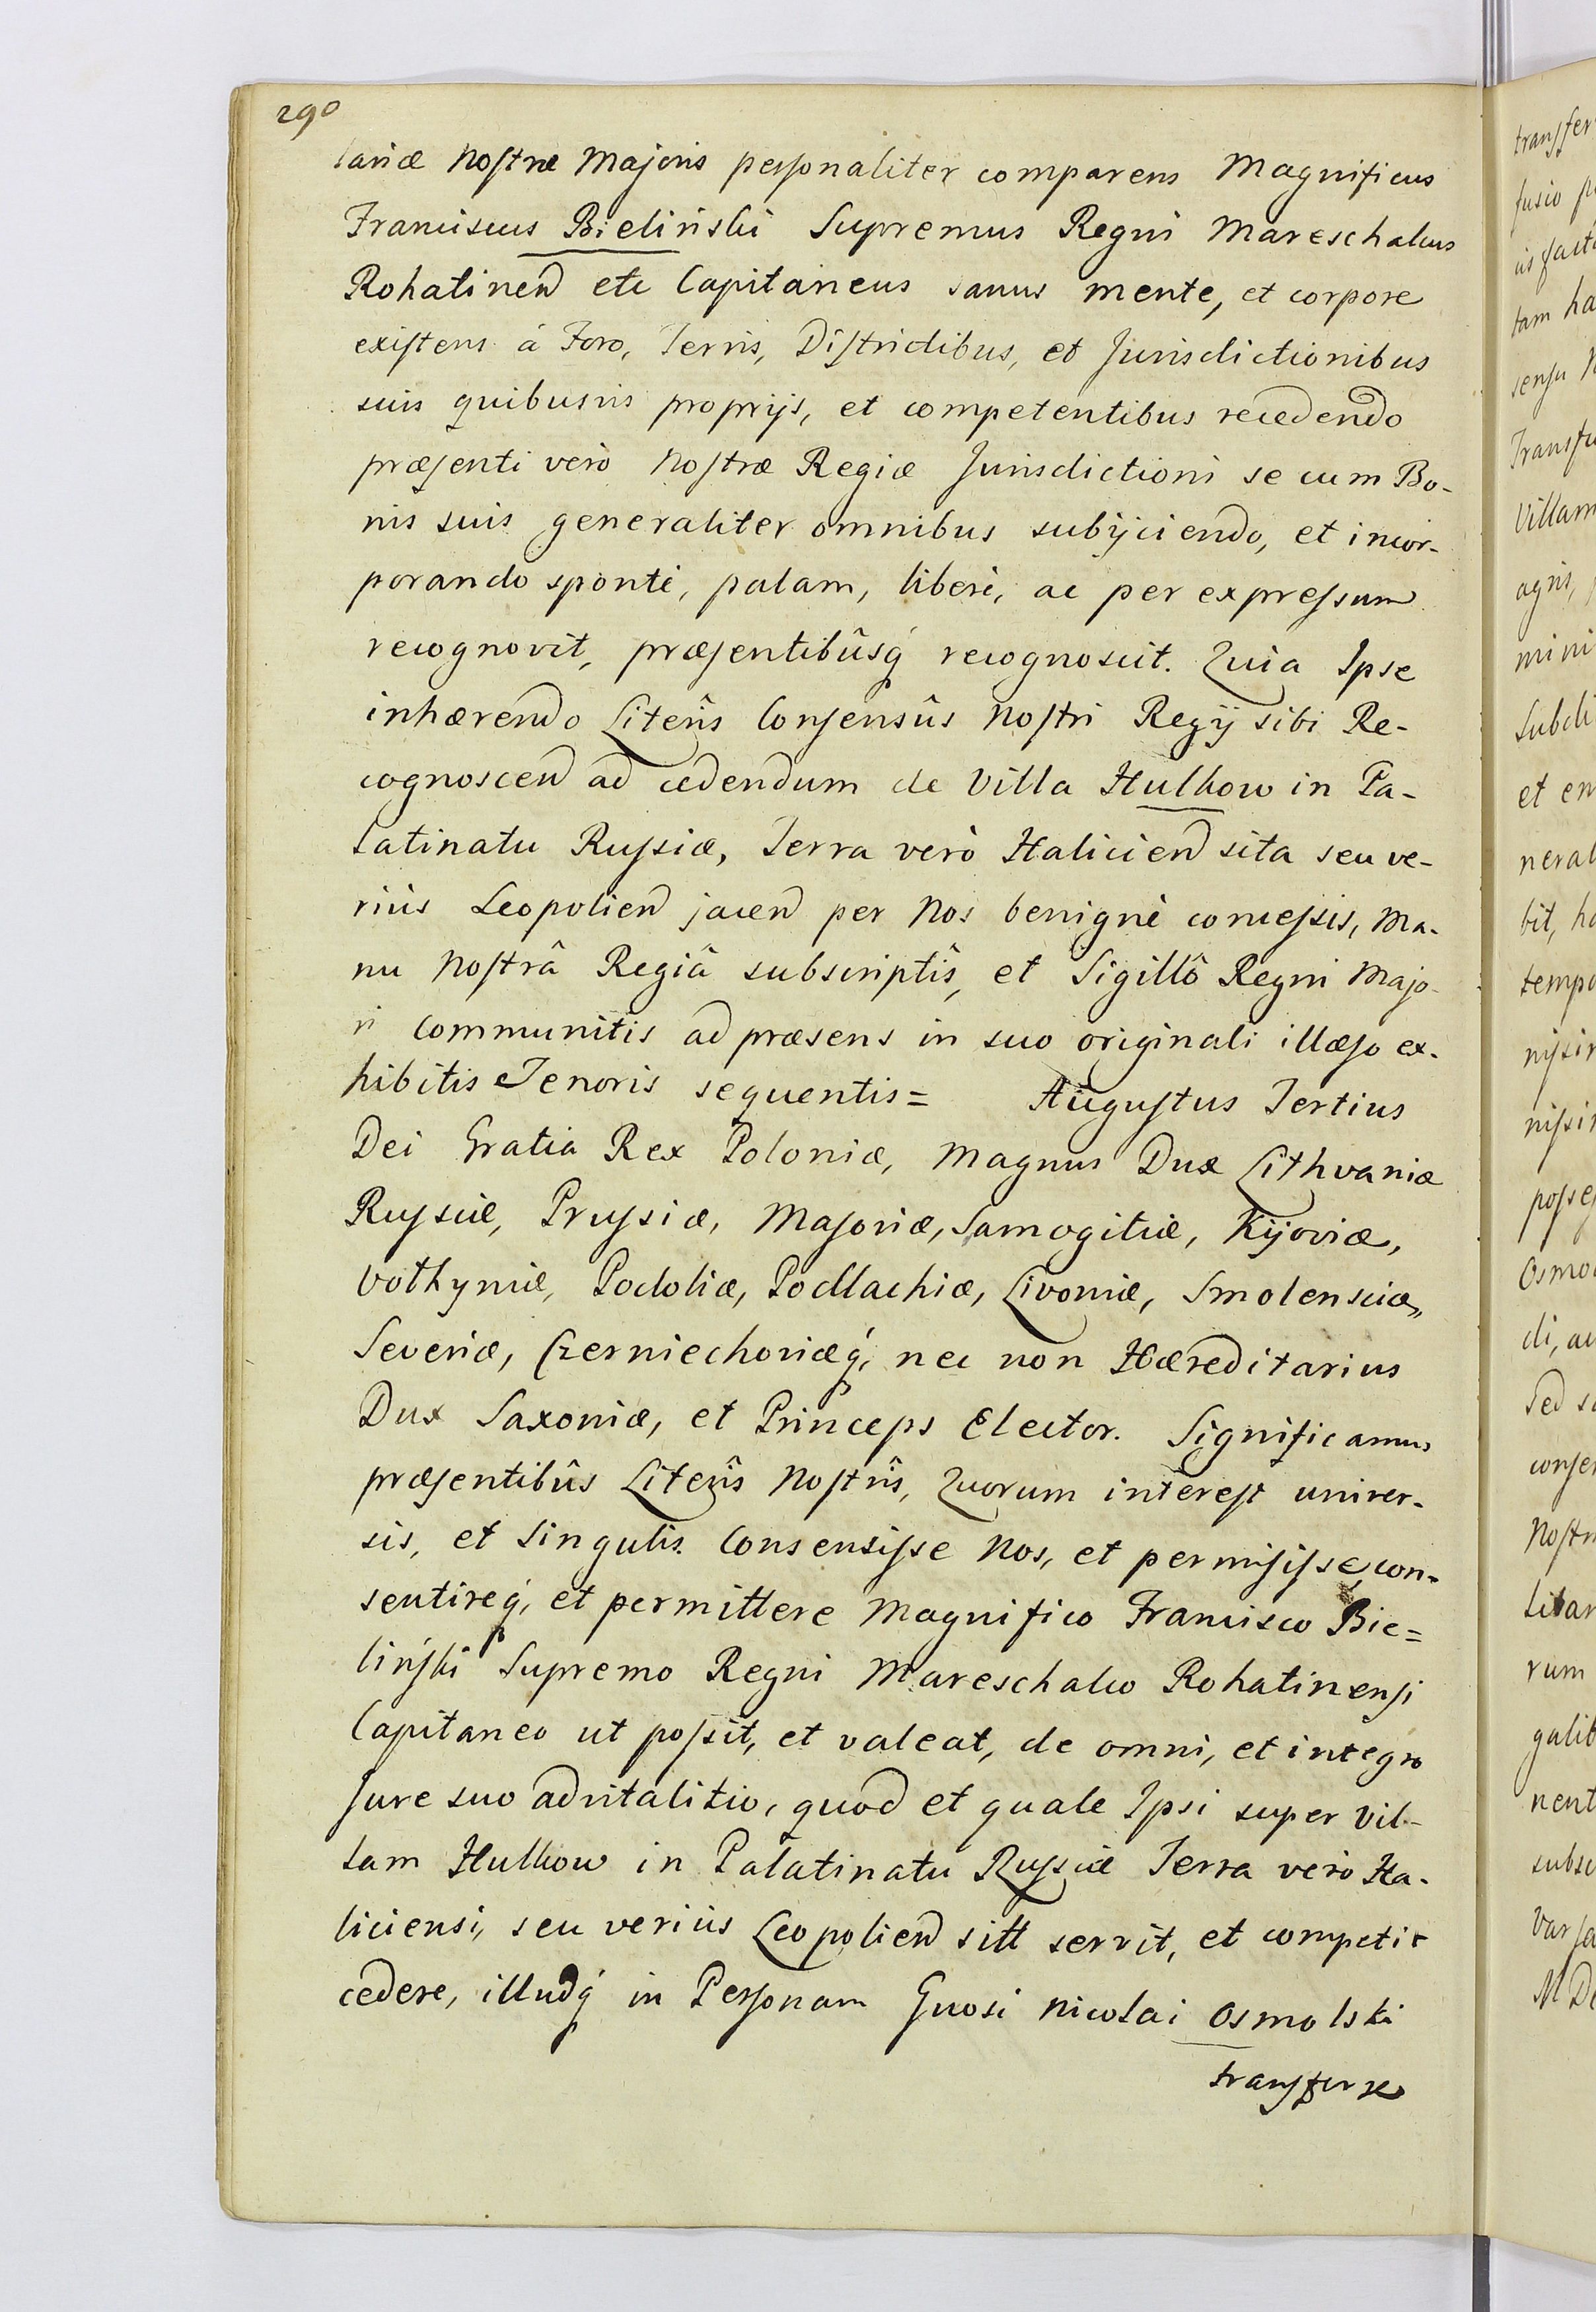 290
lariæ Nostræ Majoris personaliter comparens Magnificus
Franciscus Bielinski Supremus Regni Mareschalcus
Rohatinen etc Capitaneus sanus mente, et corpore
existens á Foro, Terris, Districtibus, et Jurisdictionibus
suis quibusvis proprijs, et competentibus recedendo
præsenti verò Nostræ Regiæ Jurisdictioni se cum Bo-
nis suis generaliter omnibus subijciendo, et incor-
porando spontè, palam, liberè, ac per expressum
recognovit, præsentibûsq́ recognoscit. Quia Ipse
inhærendo Literîs Consensûs Nostri Regij sibi Re-
cognoscen ad cedendum de Villa Hulkow in Pa-
latinatu Russiæ, Terra verò Halicien sita seu ve-
riùs Leopolien jacen per Nos benignè concessis, Ma-
nu Nostrâ Regiâ subscriptîs, et Sigillô Regni Majo-
ri communitis ad præsens in suo originali illæso ex-
hibitis Tenoris sequentis= Augustus Tertius
Dei Gratia Rex Poloniæ, Magnus Dux Lithvaniæ
Russiæ, Prussiæ, Masoviæ, Samogitiæ, Kijoviæ,
Volhyniæ, Podoliæ, Podlachiæ, Livoniæ, Smolensciæ,
Severiæ, Czerniechoviæq́, nec non Hæreditarius
Dux Saxoniæ, et Princeps Elector. Significamus
præsentibûs Literîs Nostrîs, Quorum interest univer-
sis, et singulis. Consensisse Nos, et permisisse, con-
sentireq́, et permittere Magnifico Francisco Bie=
linski Supremo Regni Mareschalco Rohatinensi
Capitaneo ut possit, et valeat, de omni, et integro
Jure suo advitalitio, quod et quale Ipsi super Vil-
lam Hulkow in Palatinatu Russiæ Terra verò Ha-
liciensi, seu veriùs Leopolien sitt servit, et competit
cedere, illudq́ in Personam Gnosi Nicolai Osmolski
transferre